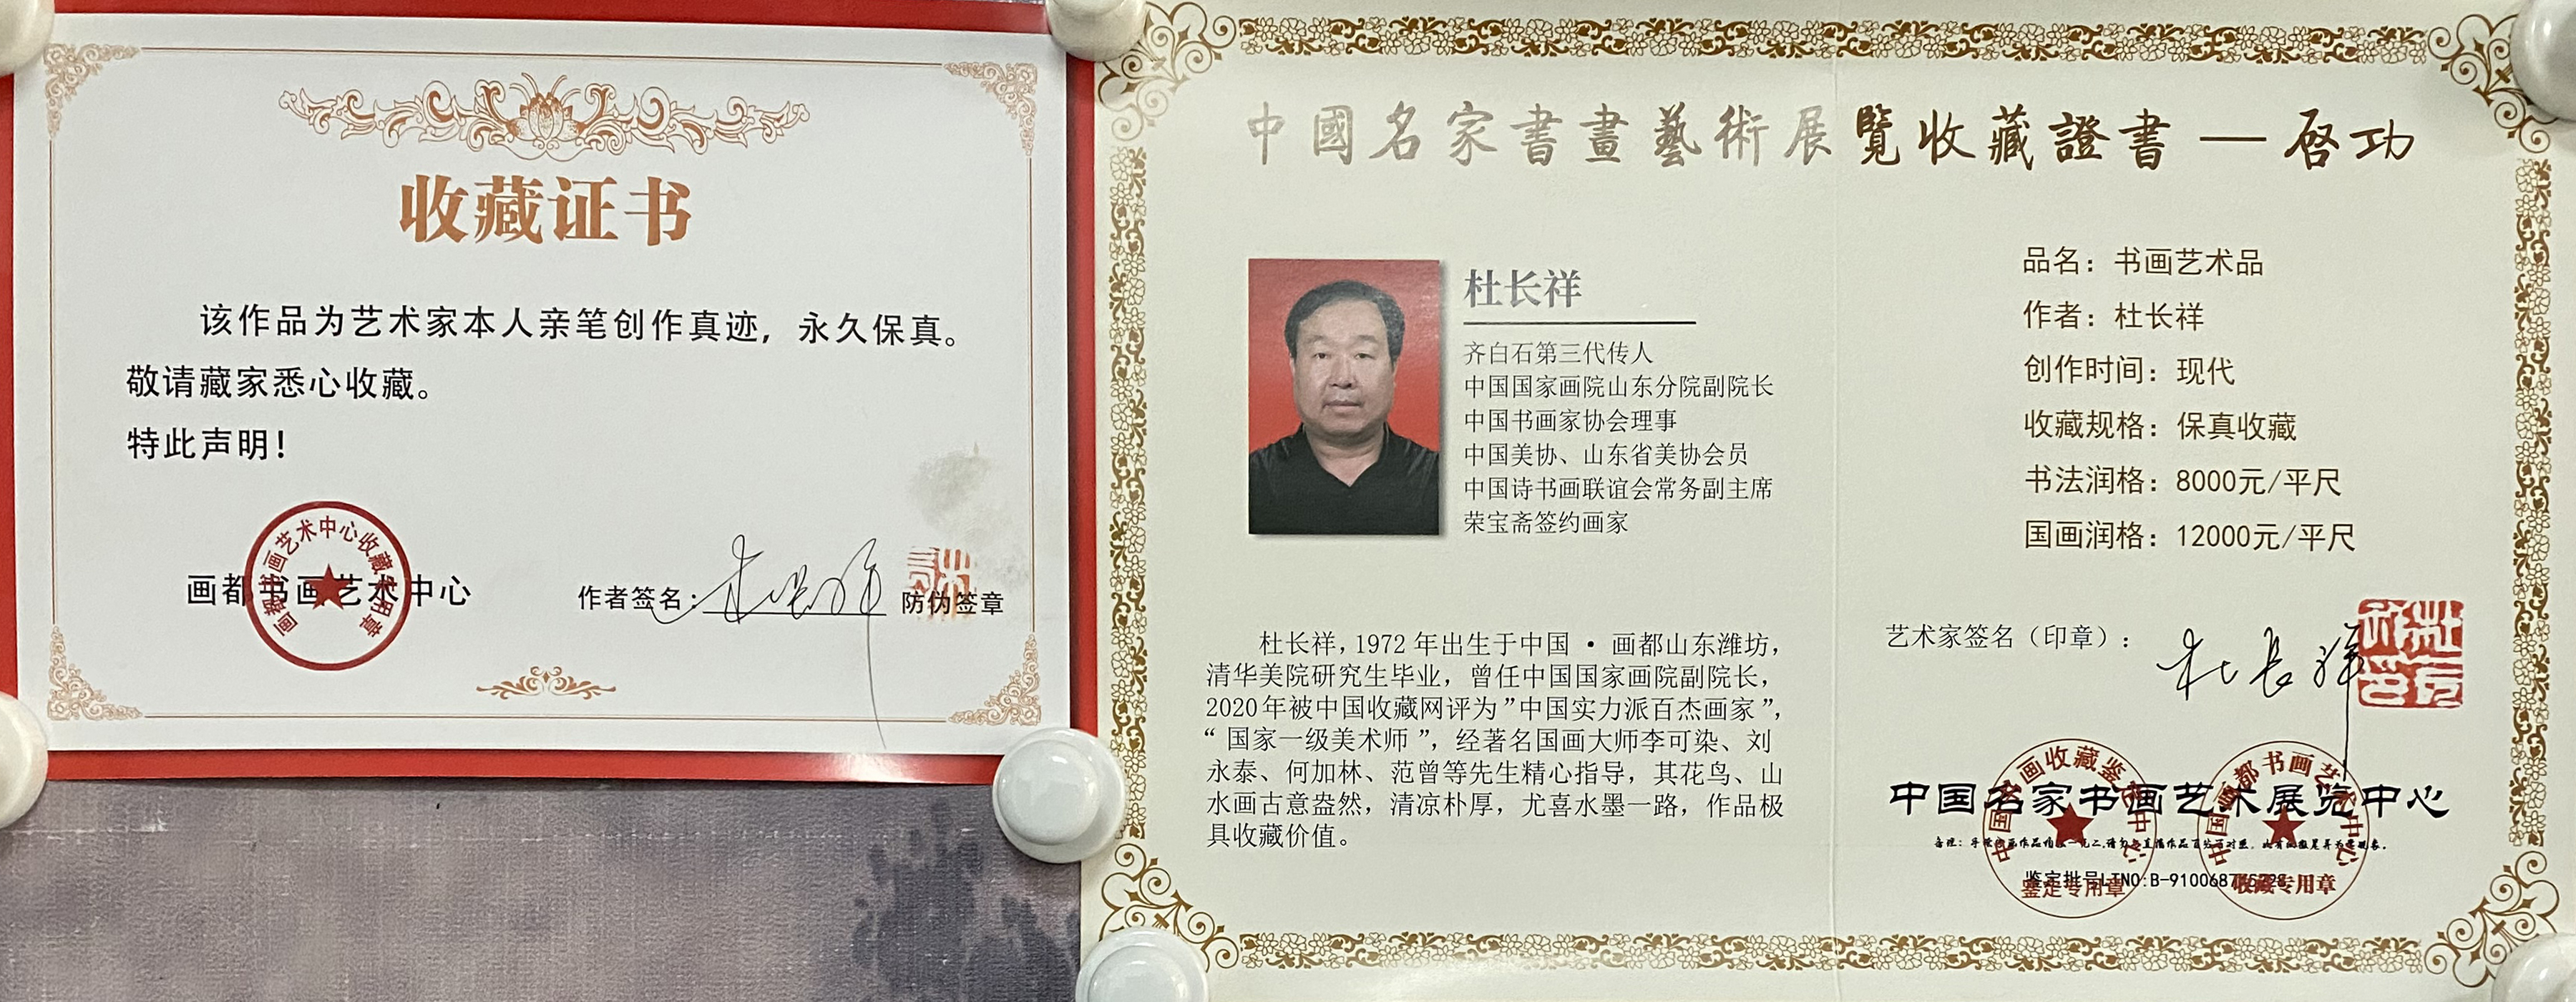 收藏证书
该作品为艺术家本人亲笔创作真迹，永久保真。
敬请藏家悉心收藏。
特此声明！
画都书画艺术中心
画都书画艺术中心收藏专用章
作者签名：
防伪签章
中國名家書畫藝術展覽收藏證書 — 启功
杜长祥
齐白石第三代传人
中国国家画院山东分院副院长
中国书画家协会理事
中国美协、山东省美协会员
中国诗书画联谊会常务副主席
荣宝斋签约画家
杜长祥，1972年出生于中国·画都山东潍坊，
清华美院研究生毕业，曾任中国国家画院副院长，
2020年被中国收藏网评为”中国实力派百杰画家”，
“国家一级美术师”，经著名国画大师李可染、刘
永泰、何加林、范曾等先生精心指导，其花鸟、山
水画古意盎然，清凉朴厚，尤喜水墨一路，作品极
具收藏价值。
品名：书画艺术品
作者：杜长祥
创作时间：现代
收藏规格：保真收藏
书法润格：8000元/平尺
国画润格：12000元/平尺
艺术家签名（印章）：
杜长祥
中国名家书画艺术展览中心
中国书画收藏鉴定中心
鉴定专用章
中国画都书画艺术中心
收藏专用章
鉴定批号LTNO:B-910068